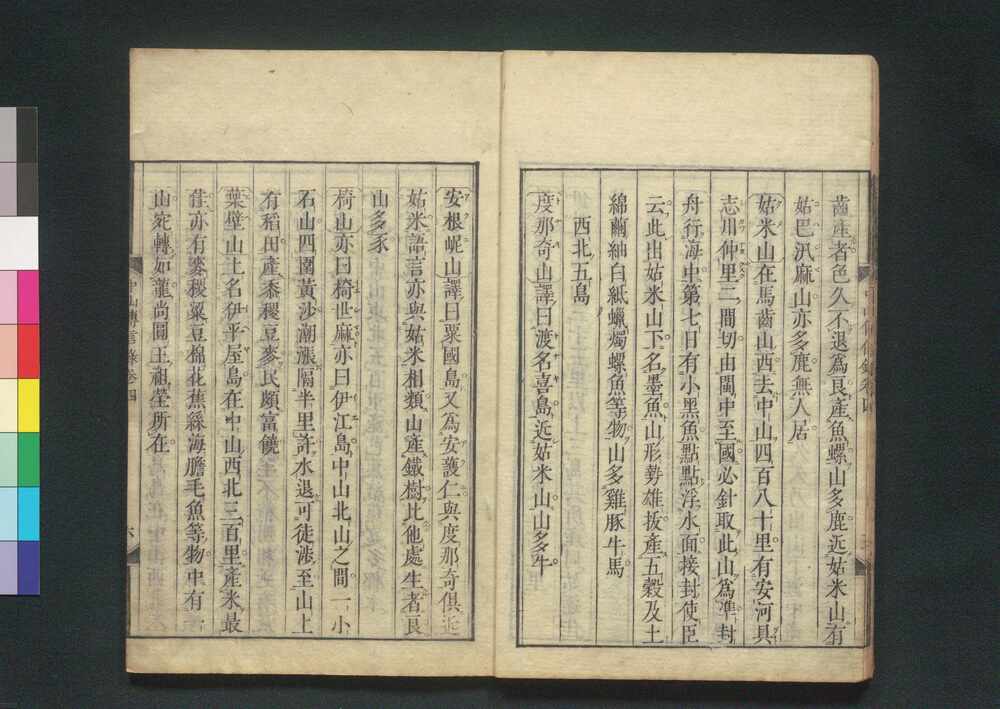 齒產者色久不退為良產魚螺山多鹿近姑米山有
姑巴汎麻山亦多鹿無人居
姑米山在馬齒山西去中山四百八十里有安河具
志川仲里二間切由閩中至國必針取此山為準封
舟行海中第七日有小黑魚點點浮水面接封使臣
云此出姑米山下名墨魚山形勢雄拔產五穀及土
綿繭紬白紙蠟燭螺魚等物山多雞豚牛馬
西北五島
度那奇山譯曰渡名喜島近姑米山山多牛
安根岻山譯曰粟國島又為安護仁與度那奇俱近
姑米語言亦與姑米相類山產鐵樹比他處生者良
山多豕
椅山亦曰椅世麻亦曰伊江島中山北山之間一小
石山四圍黃沙潮漲隔半里許水退可徒涉至山上
有稻田產黍稷豆麥民頗富饒
葉壁山土名伊平屋島在中山西北三百里產米最
佳亦有麥稷粟豆棉花蕉絲海膽毛魚等物中有一
山宛轉如龍尚圓王祖塋所在
中山傳信錄卷四
六